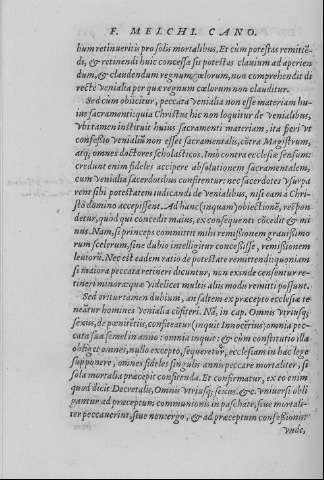 F. MELCHI. CANO.
bum retinueritis pro solis mortalibus. Et cùm potestas remittē-
di, & retinendi huic concessa sit potestas clauium ad aperien
dum, & claudendum regnum cœlorum, non comprehendit di
rectè venialia per quæ regnum cœlorum non clauditur.
Sed cùm obijcitur, peccata venialia non esse materiam hu-
ius sacramenti: quia Christus hic non loquitur de venialibus,
vbi tamen instituit huius sacramenti materiam, ita fieri vt
confessio venialiū non esset sacramentalis, cōtra Magistrum,
atq; omnes doctores scholasticos. Imò contra ecclesiæ sensum:
credunt enim fideles accipere absolutionem sacramentalem,
cum venialia sacerdotibus confitentur: nec sacerdotes vsurpa
rent sibi potestatem iudicandi de venialibus, nisi eam à Chri-
sto domino accepissent. Ad hunc (inquam) obiectionē, respon
detur, quòd qui concedit maius, ex consequenti cōcedit & mi
nus. Nam, si princeps committit mihi remissionem grauissimo
rum scelerum, sine dubio intelligitur concessisse, remissionem
leuiorū. Nec est eadem ratio de potestate remittendi: quoniam
si maiora peccata retineri dicuntur, non exinde censentur re-
tineri minora: quæ videlicet multis alijs modis remitti possunt.
Sed oritur tamen dubium, an saltem ex præcepto ecclesiæ te-
neātur homines venialia cōfiteri. Nā, in cap. Omnis vtriusq;
sexus, de pœnitētijs, confiteatur (inquit Innocētius) omnia pec-
cata sua semel in anno: omnia inquit: & cùm constitutio illa
obliget omnes, nullo excepto, sequeretur, ecclesiam in hac lege
supponere, omnes fideles singulis annis peccare mortaliter, si
sola mortalia præcepit confitenda. Et confirmatur, ex eo enim
quòd dicit Decretalis, Omnis vtriusq; sexus. &c. vniuersi obli
gantur ad præceptum communionis in paschate, siue mortali-
ter peccauerint, siue non: ergo, & ad præceptum confessionis.
Vnde,